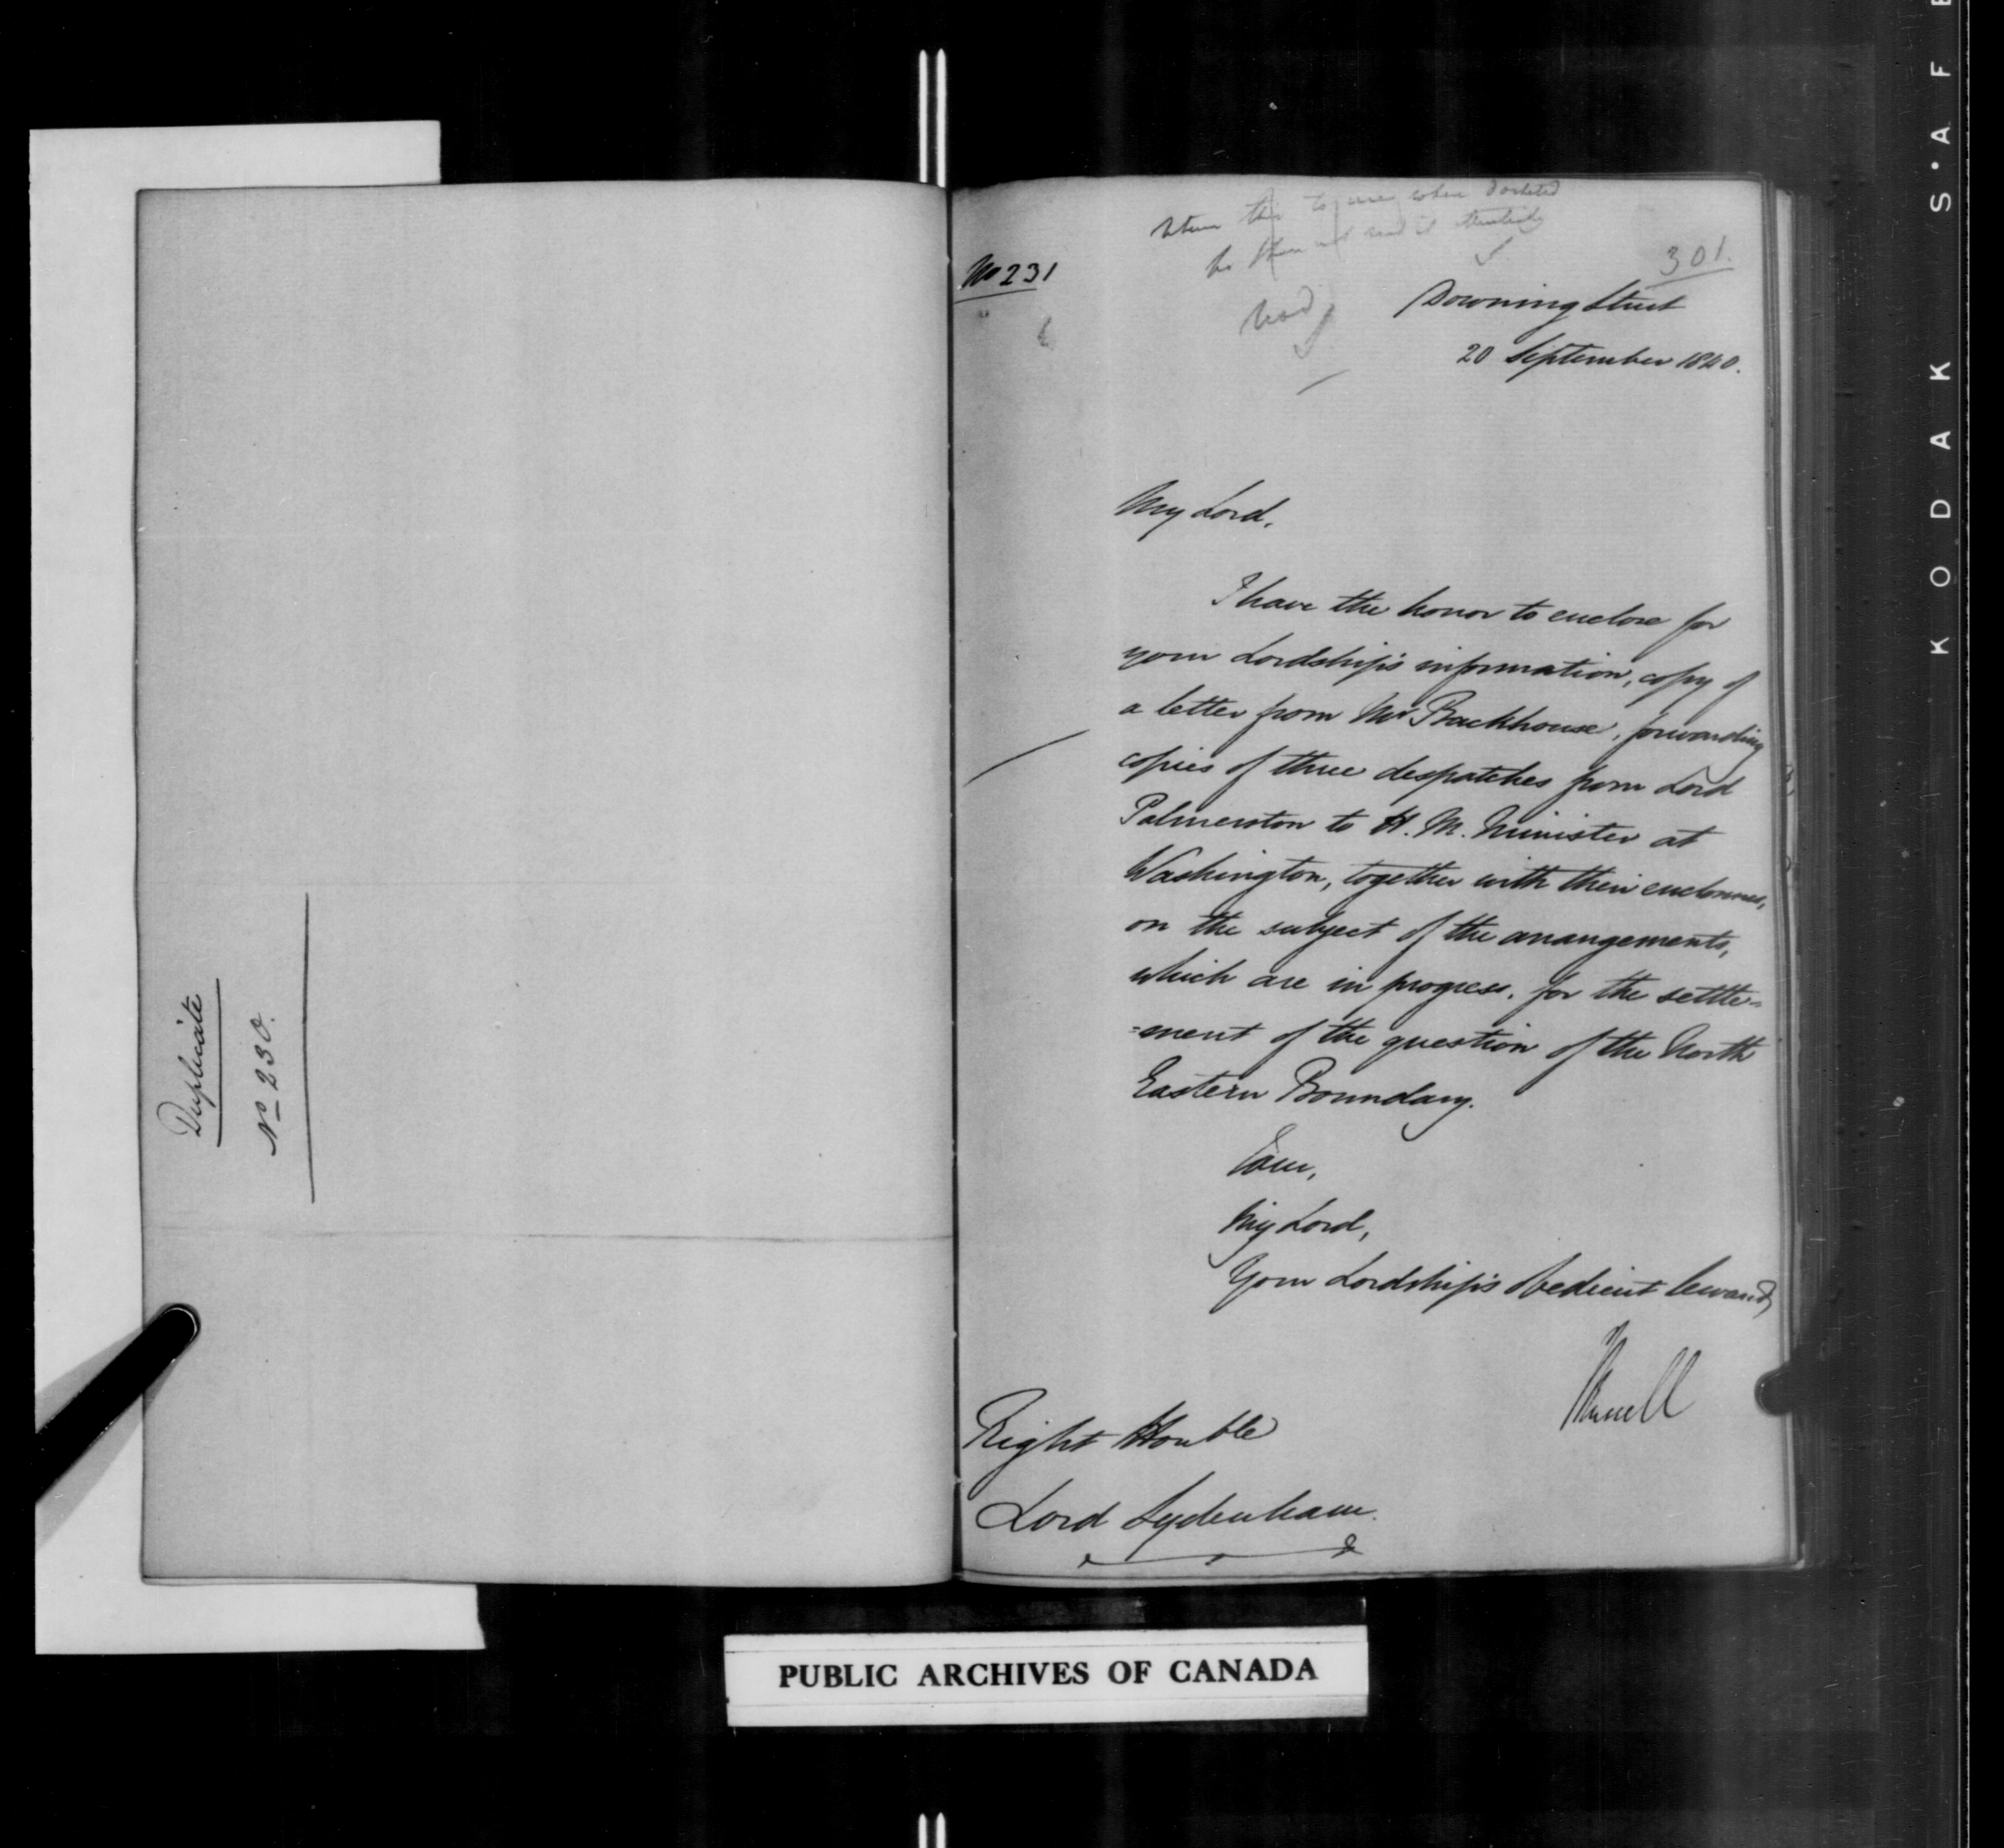 Duplicate
No 230.
No 231
301.
Downing Street
20 September 1840.
My Lord,
I have the honor to enclose for
your Lordship's information, copy of
a letter from Mr Backhouse, forwarding
copies of three despatches from Lord
Palmerston to H. M. Minister at
Washington, together with their enclosures,
on the subject of the arrangements,
which are in progress, for the settle=
=ment of the question of the North
Eastern Boundary.
I am,
My Lord,
Your Lordship's obedient Servant,
J Russell
Right Honble
Lord Sydenham.
PUBLIC ARCHIVES OF CANADA
KODAK S·AF